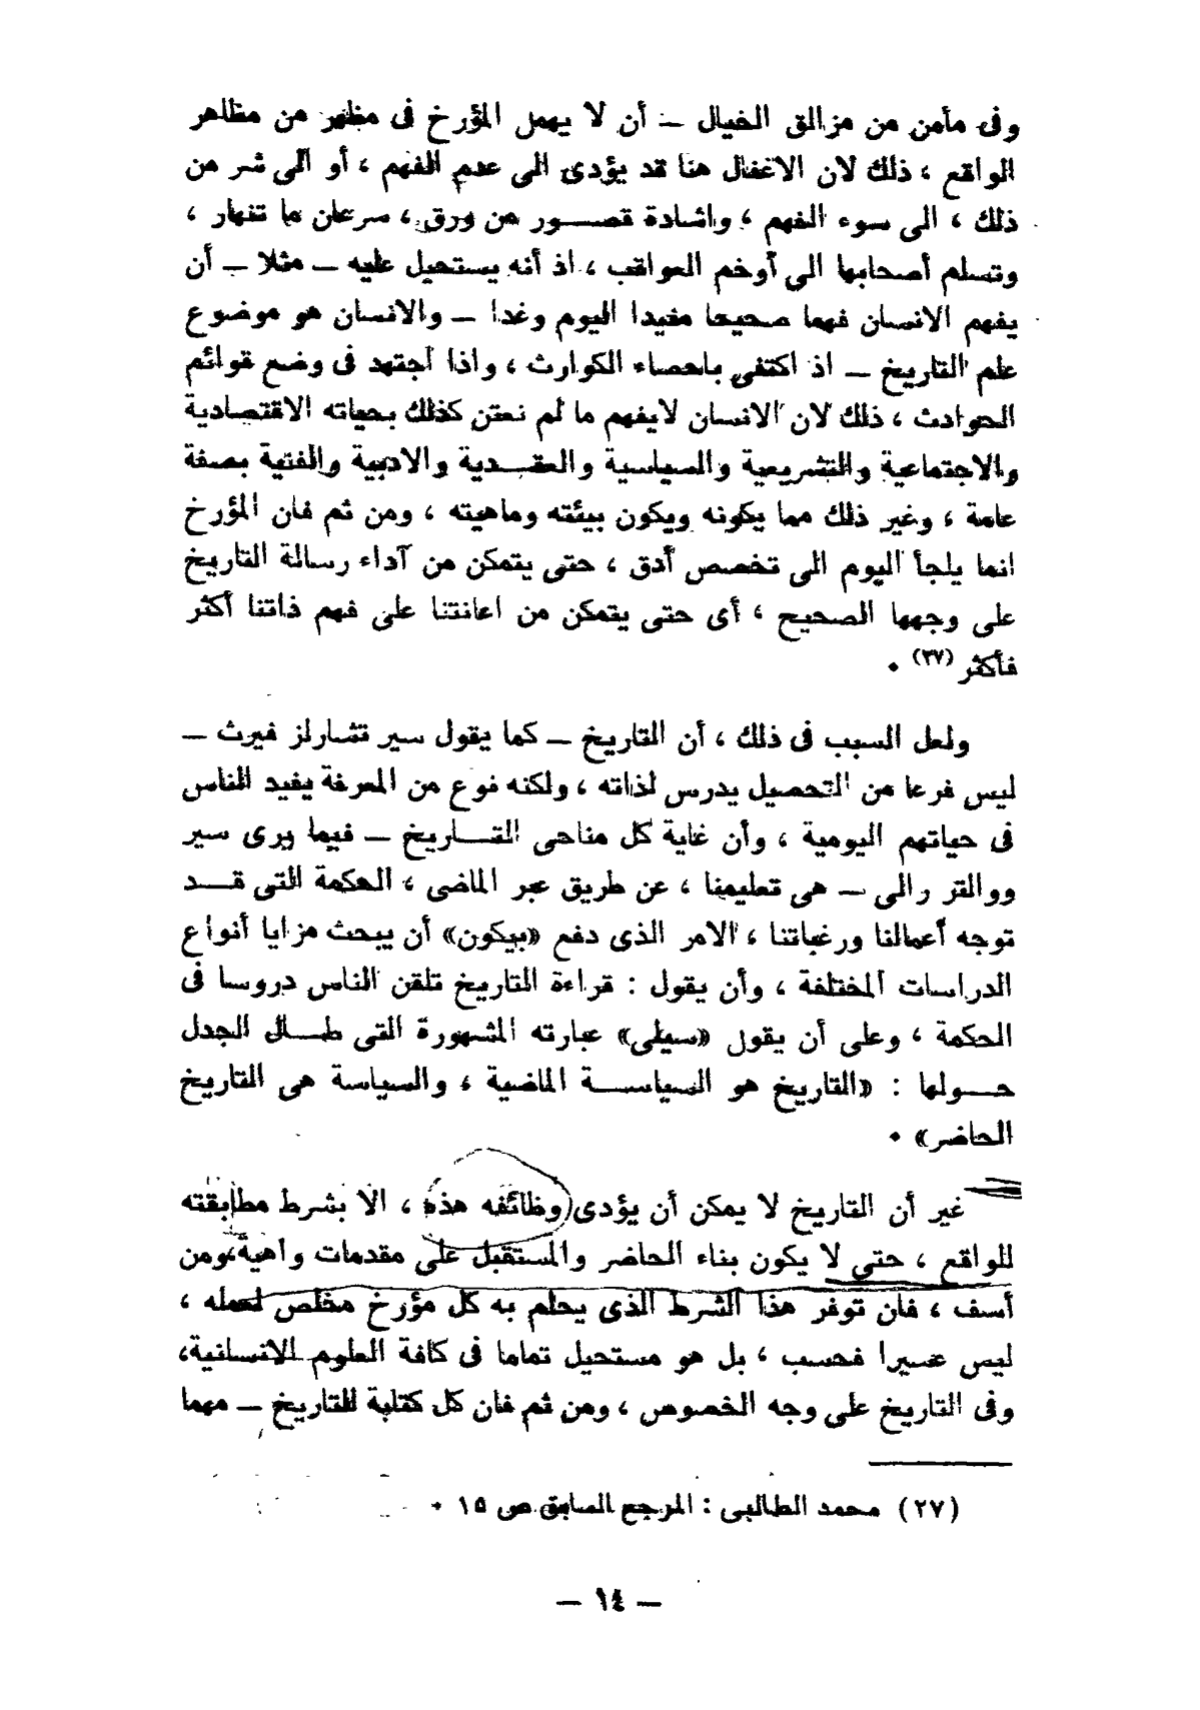 وفى مأمن من مزالق الخيال — أن لا يهمل المؤرخ فى مظهر من مظاهر
الواقع ، ذلك لان الاغفال هنا قد يؤدى الى عدم الفهم ، أو الى شر من
ذلك ، الى سوء الفهم ، واشادة قصور من ورق ، سرعان ما تنهار ،
وتسلم أصحابها الى أوخم العواقب ، اذ أنه يستحيل عليه — مثلا — أن
يفهم الانسان فهما صحيحا مفيدا اليوم وغدا — والانسان هو موضوع
علم التاريخ — اذ اكتفى باحصاء الكوارث ، واذا اجتهد فى وضع قوائم
الحوادث ، ذلك لان الانسان لايفهم ما لم نعتن كذلك بحياته الاقتصادية
والاجتماعية والتشريعية والسياسية والعقدية والادبية والفنية بصفة
عامة ، وغير ذلك مما يكونه ويكون بيئته وماهيته ، ومن ثم فان المؤرخ
انما يلجأ اليوم الى تخصص أدق ، حتى يتمكن من آداء رسالة التاريخ
على وجهها الصحيح ، أى حتى يتمكن من اعانتنا على فهم ذاتنا أكثر
فأكثر (٢٧) ٠
ولعل السبب فى ذلك ، أن التاريخ — كما يقول سير تشارلز فيرث —
ليس فرعا من التحصيل يدرس لذاته ، ولكنه نوع من المعرفة يفيد الناس
فى حياتهم اليومية ، وأن غاية كل مناحى التاريخ — فيما يرى سير
ووالتر رالى — هى تعليمنا ، عن طريق عبر الماضى ، الحكمة التى قد
توجه أعمالنا ورغباتنا ، الامر الذى دفع «بيكون» أن يبحث مزايا أنواع
الدراسات المختلفة ، وأن يقول : قراءة التاريخ تلقن الناس دروسا فى
الحكمة ، وعلى أن يقول «سيلى» عبارته المشهورة التى طال الجدل
حولها : «التاريخ هو السياسة الماضية ، والسياسة هى التاريخ
الحاضر» ٠
غير أن التاريخ لا يمكن أن يؤدى وظائفه هذه ، الا بشرط مطابقته
للواقع ، حتى لا يكون بناء الحاضر والمستقبل على مقدمات واهية، ومن
أسف ، فان توفر هذا الشرط الذى يحلم به كل مؤرخ مخلص لعمله ،
ليس عسيرا فحسب ، بل هو مستحيل تماما فى كافة العلوم الانسانية،
وفى التاريخ على وجه الخصوص ، ومن ثم فان كل كتابة للتاريخ — مهما
(٢٧) محمد الطالبى : المرجع السابق ص ١٥ ٠
— ١٤ —